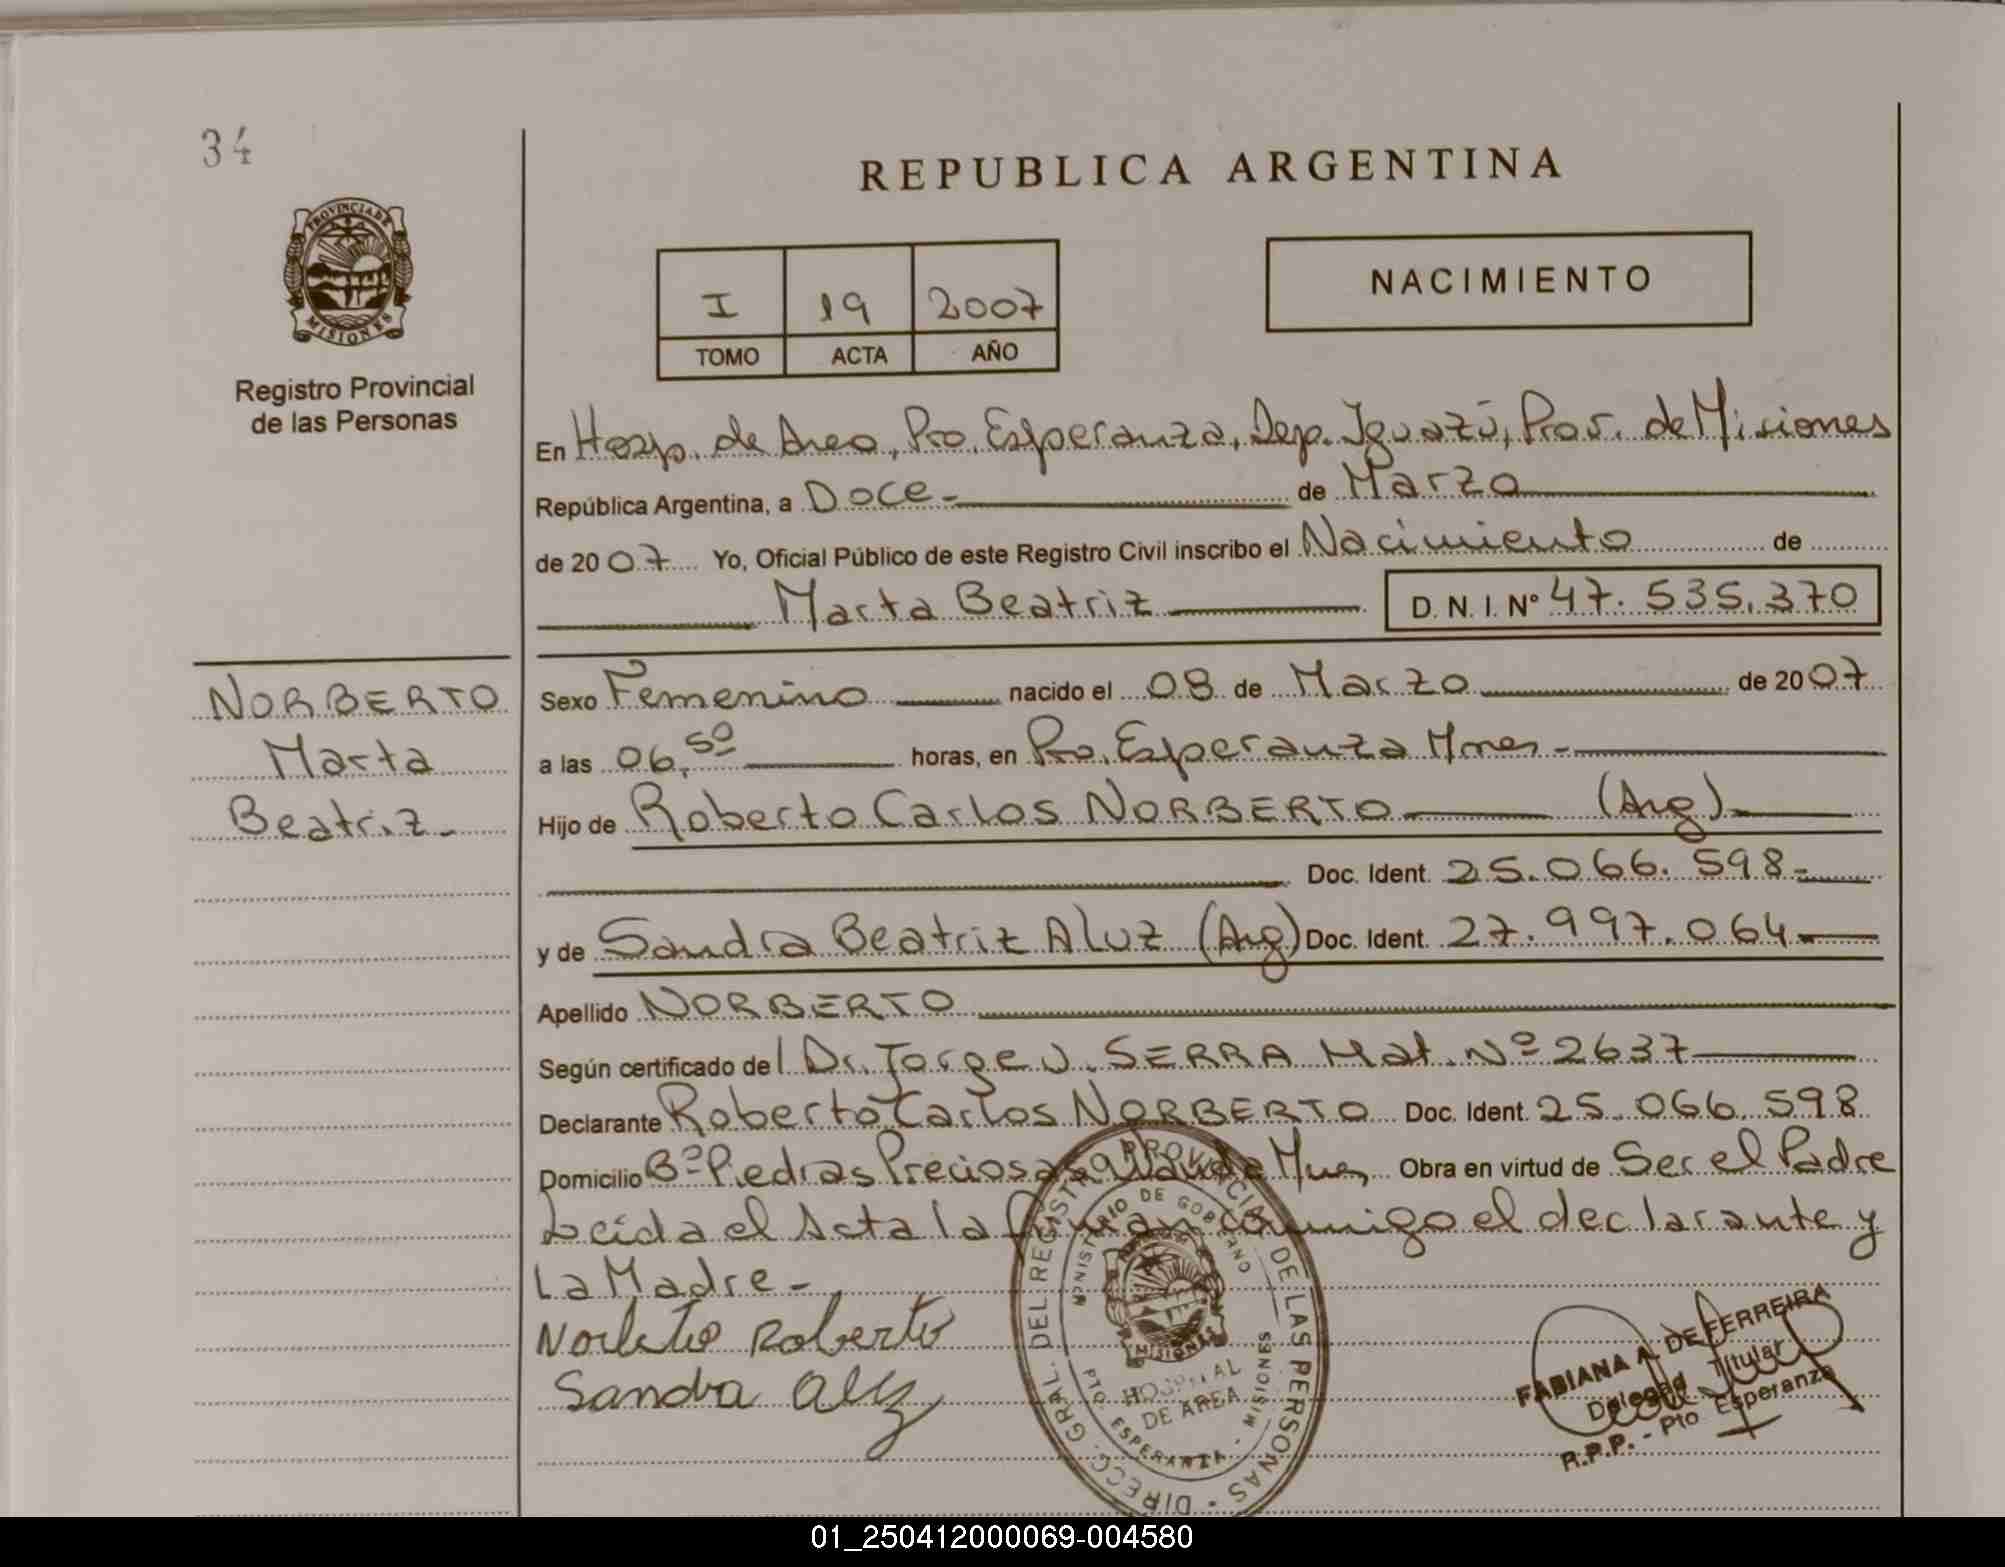 34
REPUBLICA ARGENTINA
PROVINCIA DE
MISIONES
Registro Provincial
de las Personas
I 19 2007
TOMO ACTA AÑO
NACIMIENTO
En Hosp. de Area, Pto. Esperanza, Dep. Iguazú, Prov. de Misiones
República Argentina, a Doce - de Marzo
de 2007 Yo, Oficial Público de este Registro Civil inscribo el Nacimiento de
Marta Beatriz D. N. I. Nº 47.535.370
NORBERTO
Marta
Beatriz.-
Sexo Femenino nacido el 08 de Marzo de 2007
a las 06,50 horas, en Pto. Esperanza Mnes -
Hijo de Roberto Carlos NORBERTO (Arg)
Doc. Ident. 25.066.598-
y de Sandra Beatriz Aluz (Arg) Doc. Ident. 27.997.064-
Apellido NORBERTO
Según certificado de l Dr. Jorge J. SERRA Mat. Nº 2637
Declarante Roberto Carlos NORBERTO Doc. Ident. 25.066.598
Domicilio Bº Piedras Preciosas Wanda Mnes Obra en virtud de Ser el Padre
Leída el Acta la firman conmigo el declarante y
La Madre -
Norberto Roberto
Sandra Aluz
DIRECC. GRAL. DEL REGISTRO PROVINCIAL DE LAS PERSONAS
MINISTERIO DE GOBIERNO
MISIONES
HOSPITAL
DE AREA
PTO ESPERANZA - MISIONES
FABIANA A. DE FERREIRA
Delegad Titular
R.P.P. - Pto Esperanza
01_250412000069-004580